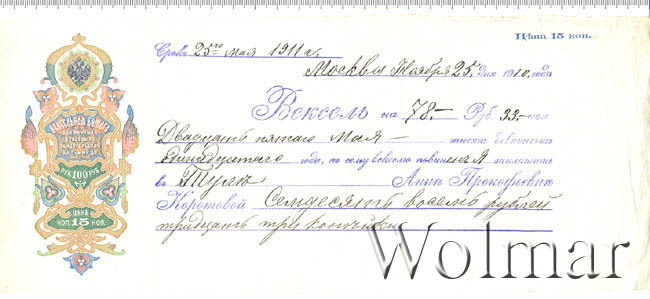 Цѣна 15 коп.
Срокъ 25го мая 1911 г.
Москва Ноября 25 дня 1910 года
Вексель на 78.— Руб. 33.— коп
ВЕКСЕЛЬНАЯ БУМАГА
РУБ 100 РУБ
ЦѢНА
КОП 15 КОП.
Двадцать пятаго Мая — тысяча девятьсотъ
одиннадцатаго года, по сему векселю повиненъ Я заплатить
въ Тулѣ Аннѣ Прокофьевнѣ
Коротовой Семдесятъ восемь рублей
тридцать три копѣйки
Wolmar